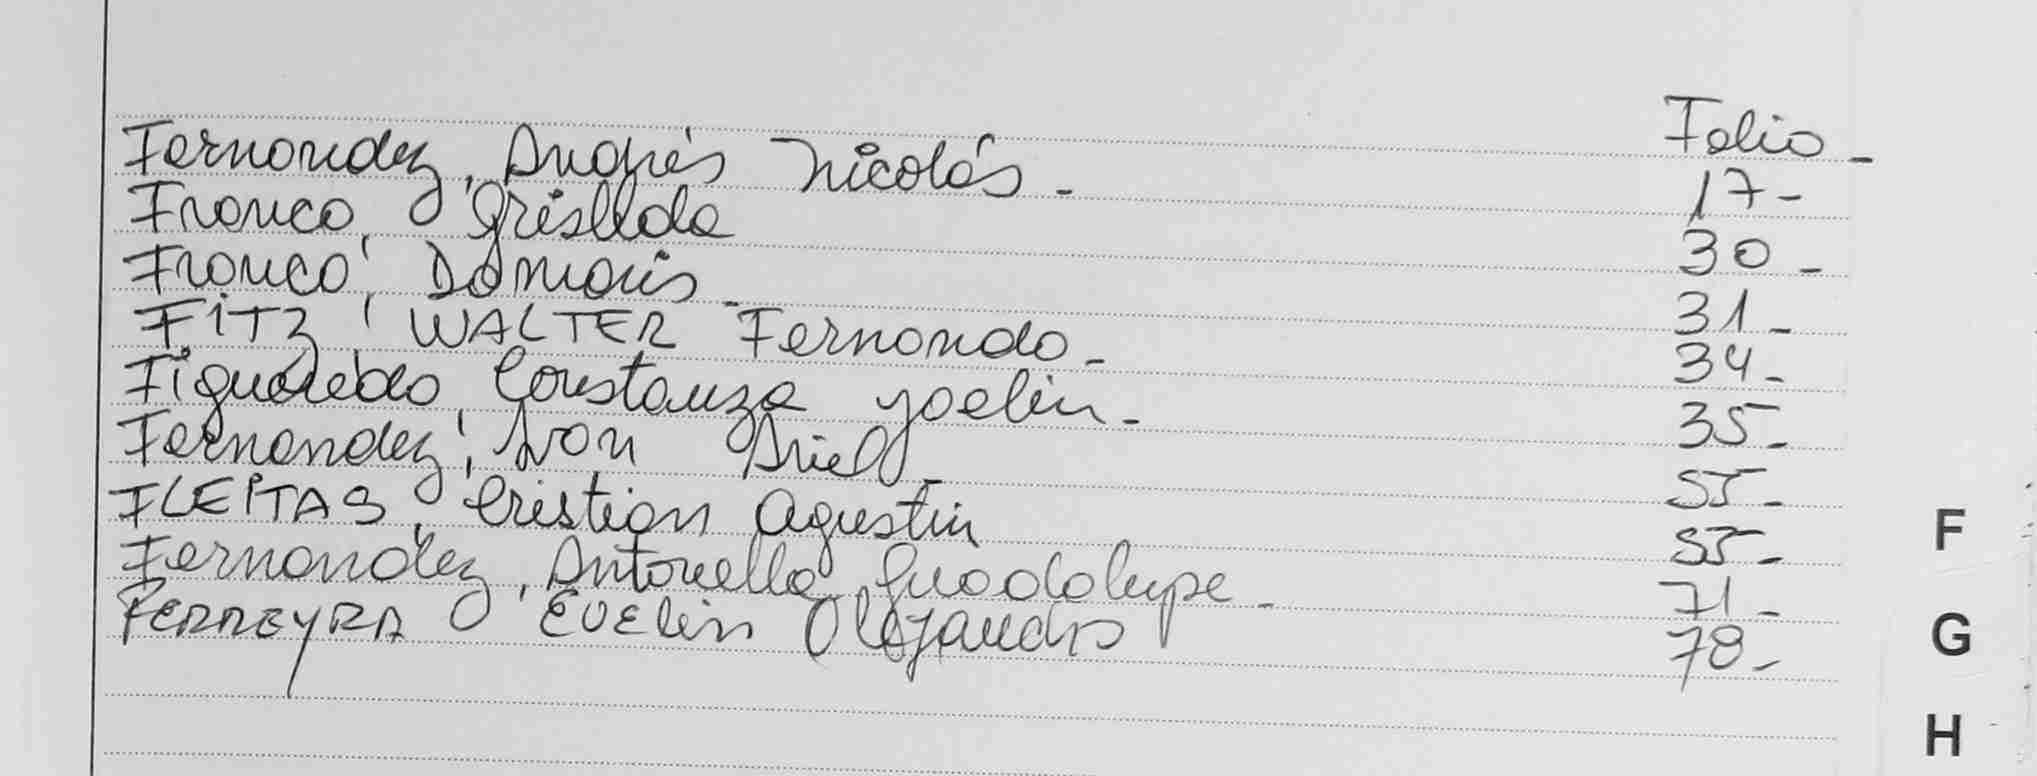 Folio -
Fernandez, Andrés Nicolás - 17-
Franco, Grisllda 30-
Franco, Damaris - 31-
FITZ, WALTER Fernando - 34-
Figueredo Constanza Yoelin - 35-
Fernandez, Ivon Ariel - 55-
FLEITAS, Cristian Agustin 55-
Fernandez, Antonella Guadalupe - 71-
FERREYRA EVElin Alejandra 78-
F
G
H